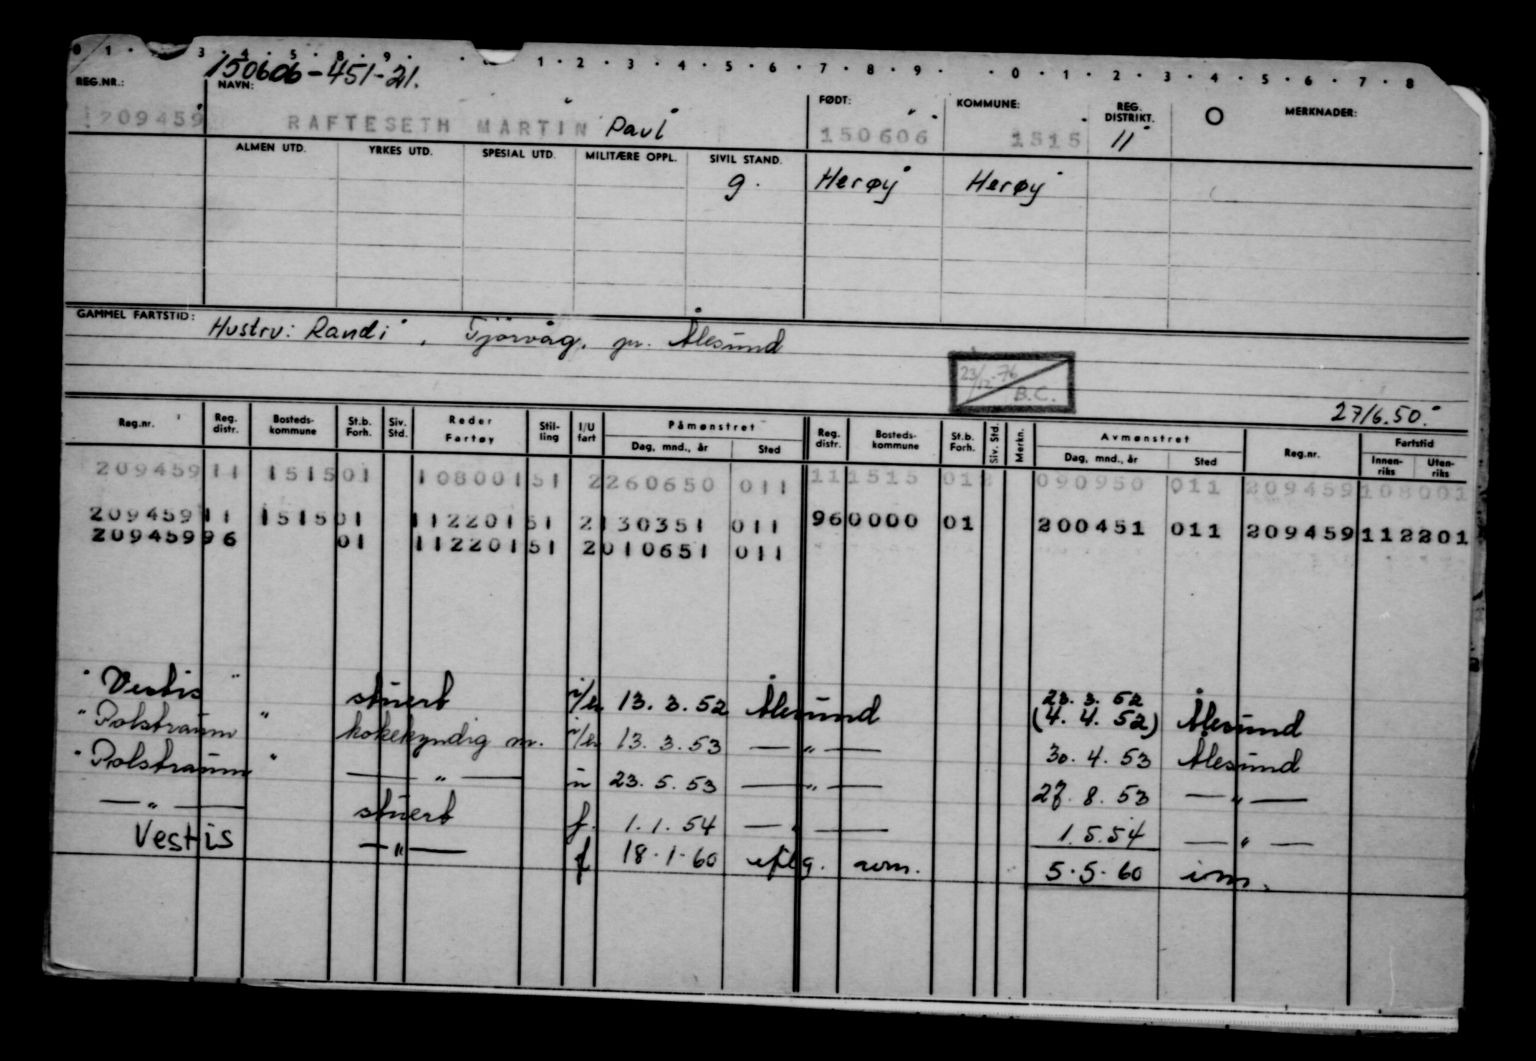 0 1 · 3 · 4 · 5 · 8 · 9 · · 1 · 2 · 3 · 4 · 5 · 6 · 7 · 8 · 9 · · 0 · 1 · 2 · 3 · 4 · 5 · 6 · 7 · 8
150606-451-21.
REG.NR.: NAVN: FØDT: KOMMUNE: REG. DISTRIKT. O MERKNADER:
209459 RAFTESETH MARTIN Paul 150606 1515 11
ALMEN UTD. YRKES UTD. SPESIAL UTD. MILITÆRE OPPL. SIVIL STAND.
g. Herøy Herøy
GAMMEL FARTSTID: Hustru: Randi, Tjörvåg, pr. Ålesund
23/12-76 B.C.
27/6.50.
Reg.nr. Reg. distr. Bosteds-kommune St.b. Forh. Siv. Std. Reder Fartøy Stil-ling I/U fart Påmønstret Dag, mnd., år Sted Reg. distr. Bosteds-kommune St.b. Forh. Siv. Std. Merkn. Avmønstret Dag, mnd., år Sted Reg.nr. Fartstid Innen-riks Uten-riks
209459 11 1515 01 108001 51 2 260650 011 11 1515 012 090950 011 209459 108001
209459 11 1515 01 112201 51 2 130351 011 96 0000 01 200451 011 209459 112201
209459 96 01 112201 51 2 010651 011
"Vestis" stuert i/u 13.3.52 Ålesund 23.3.52 (4.4.52) Ålesund
"Polstraum" kokekyndig m. i/u 13.3.53 —"— 30.4.53 Ålesund
"Polstraum" —"— u 23.5.53 —"— 27.8.53 —"—
—"— stuert f. 1.1.54 —"— 1.5.54 —"—
Vestis —"— f 18.1.60 5.5.60